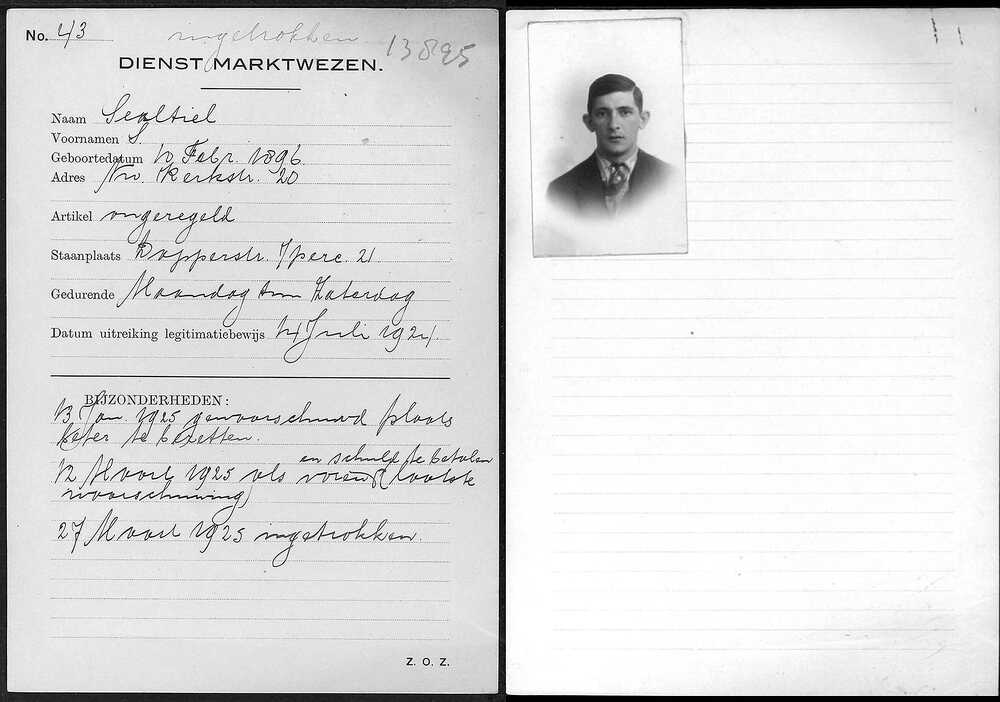 No. 43
ingetrokken
13895
DIENST MARKTWEZEN.
Naam Sealtiel
Voornamen S.
Geboortedatum 10 Febr. 1896
Adres Nw. Kerkstr. 20
Artikel ongeregeld
Staanplaats Dapperstr. /perc. 21
Gedurende Maandag t/m Zaterdag
Datum uitreiking legitimatiebewijs 14 Juli 1924.
BIJZONDERHEDEN:
13 Jan. 1925 gewaarschuwd plaats
beter te bezetten.
en schuld te betalen
12 Maart 1925 als voren (laatste
waarschuwing)
27 Maart 1925 ingetrokken.
Z. O. Z.